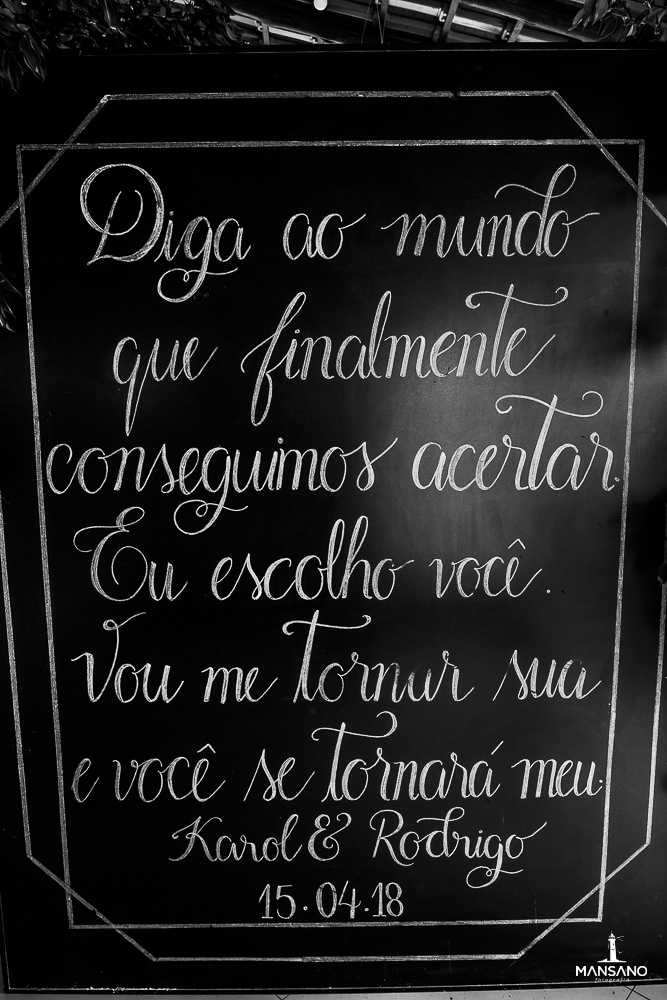 Diga ao mundo
que finalmente
conseguimos acertar.
Eu escolho você.
Vou me tornar sua
e você se tornará meu.
Karol & Rodrigo
15.04.18
MANSANO
fotografia